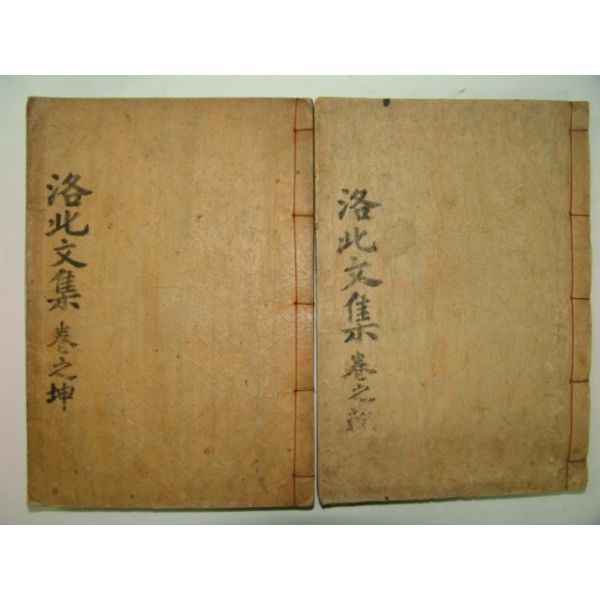 洛北文集 卷之乾
洛北文集 卷之坤